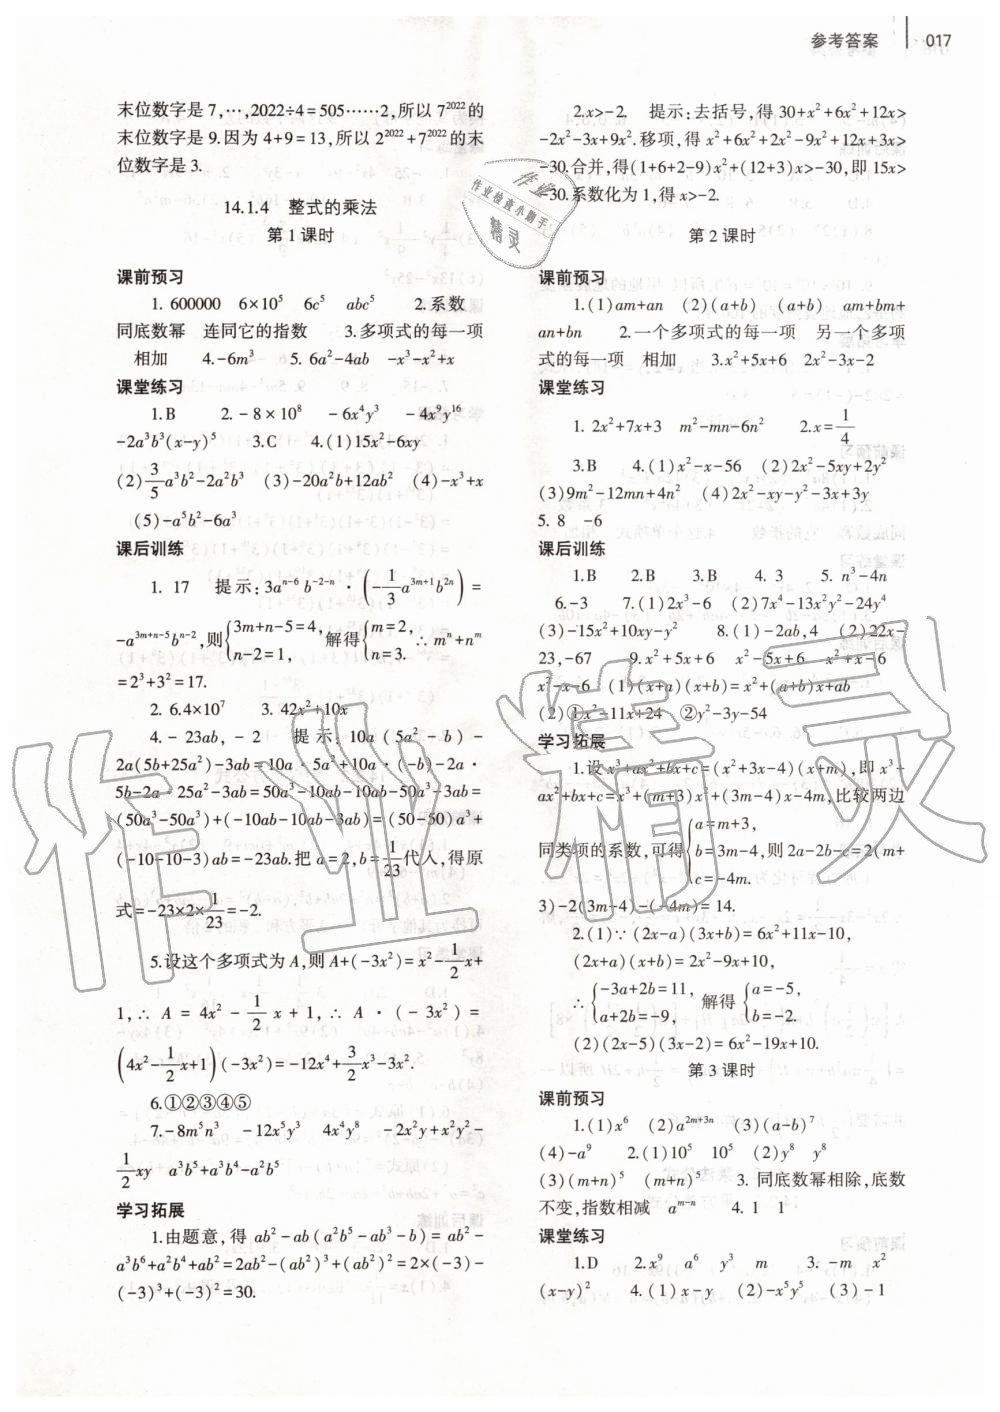 参考答案 017
末位数字是7,…,2022÷4=505……2,所以7²⁰²²的
末位数字是9.因为4+9=13,所以2²⁰²²+7²⁰²²的末
位数字是3.
14.1.4 整式的乘法
第1课时
课前预习
1. 600000 6×10⁵ 6c⁵ abc⁵ 2.系数
同底数幂 连同它的指数 3.多项式的每一项
相加 4.-6m³ 5. 6a²-4ab -x³-x²+x
课堂练习
1.B 2.-8×10⁸ -6x⁴y³ -4x⁹y¹⁶
-2a³b³(x-y)⁵ 3.C 4.(1)15x²-6xy
(2)3/5a³b²-2a²b³ (3)-20a²b+12ab² (4)-x³+x
(5)-a⁵b²-6a³
课后训练
1. 17 提示:3aⁿ⁻⁶b⁻²⁻ⁿ·(-1/3a³ᵐ⁺¹b²ⁿ)=
-a³ᵐ⁺ⁿ⁻⁵bⁿ⁻²,则{3m+n-5=4, n-2=1, 解得{m=2, n=3. ∴mⁿ+nᵐ
=2³+3²=17.
2. 6.4×10⁷ 3. 42x²+10x
4.-23ab,-2 提示:10a(5a²-b)-
2a(5b+25a²)-3ab=10a·5a²+10a·(-b)-2a·
5b-2a·25a²-3ab=50a³-10ab-10ab-50a³-3ab=
(50a³-50a³)+(-10ab-10ab-3ab)=(50-50)a³+
(-10-10-3)ab=-23ab.把a=2,b=1/23代人,得原
式=-23×2×1/23=-2.
5.设这个多项式为A,则A+(-3x²)=x²-1/2x+
1,∴A=4x²-1/2x+1,∴A·(-3x²)=
(4x²-1/2x+1)(-3x²)=-12x⁴+3/2x³-3x².
6.①②③④⑤
7.-8m⁵n³ -12x⁵y³ 4x⁴y⁸ -2x²y+x²y²-
1/2xy a³b⁵+a³b⁴-a²b⁵
学习拓展
1.由题意,得ab²-ab(a²b⁵-ab³-b)=ab²-
a³b⁶+a²b⁴+ab²=2ab²-(ab²)³+(ab²)²=2×(-3)-
(-3)³+(-3)²=30.
2.x>-2. 提示:去括号,得30+x²+6x²+12x>
-2x²-3x+9x².移项,得x²+6x²+2x²-9x²+12x+3x>
-30.合并,得(1+6+2-9)x²+(12+3)x>-30,即15x>
-30.系数化为1,得x>-2.
第2课时
课前预习
1.(1)am+an (2)(a+b) (a+b) am+bm+
an+bn 2.一个多项式的每一项 另一个多项
式的每一项 相加 3.x²+5x+6 2x²-3x-2
课堂练习
1. 2x²+7x+3 m²-mn-6n² 2.x=1/4
3.B 4.(1)x²-x-56 (2)2x²-5xy+2y²
(3)9m²-12mn+4n² (4)2x²-xy-y²-3x+3y
5. 8 -6
课后训练
1.B 2.B 3.B 4. 3 5. n³-4n
6.-3 7.(1)2x³-6 (2)7x⁴-13x²y²-24y⁴
(3)-15x²+10xy-y² 8.(1)-2ab,4 (2)22x-
23,-67 9.x²+5x+6 x²-5x+6 x²+x-6
x²-x-6 (1)(x+a)(x+b)=x²+(a+b)x+ab
(2)①x²-11x+24 ②y²-3y-54
学习拓展
1.设x³+ax²+bx+c=(x²+3x-4)(x+m),即x³+
ax²+bx+c=x³+(m+3)x²+(3m-4)x-4m,比较两边
同类项的系数,可得{a=m+3, b=3m-4, c=-4m. 则2a-2b-c=2(m+
3)-2(3m-4)-(-4m)=14.
2.(1)∵(2x-a)(3x+b)=6x²+11x-10,
(2x+a)(x+b)=2x²-9x+10,
∴{-3a+2b=11, a+2b=-9, 解得{a=-5, b=-2.
(2)(2x-5)(3x-2)=6x²-19x+10.
第3课时
课前预习
1.(1)x⁶ (2)a²ᵐ⁺³ⁿ (3)(a-b)⁷
(4)-a⁹ 2.(1)10⁵ 10⁵ (2)y⁸ y⁸
(3)(m+n)⁵ (m+n)⁵ 3.同底数幂相除,底数
不变,指数相减 aᵐ⁻ⁿ 4. 1 1
课堂练习
1.D 2.x⁹ a⁶ y³ m 3.-m x²
(x-y)² 4.(1)x-y (2)-x⁵y⁵ (3)-1
作业检查小助手
作业
精灵
作业精灵